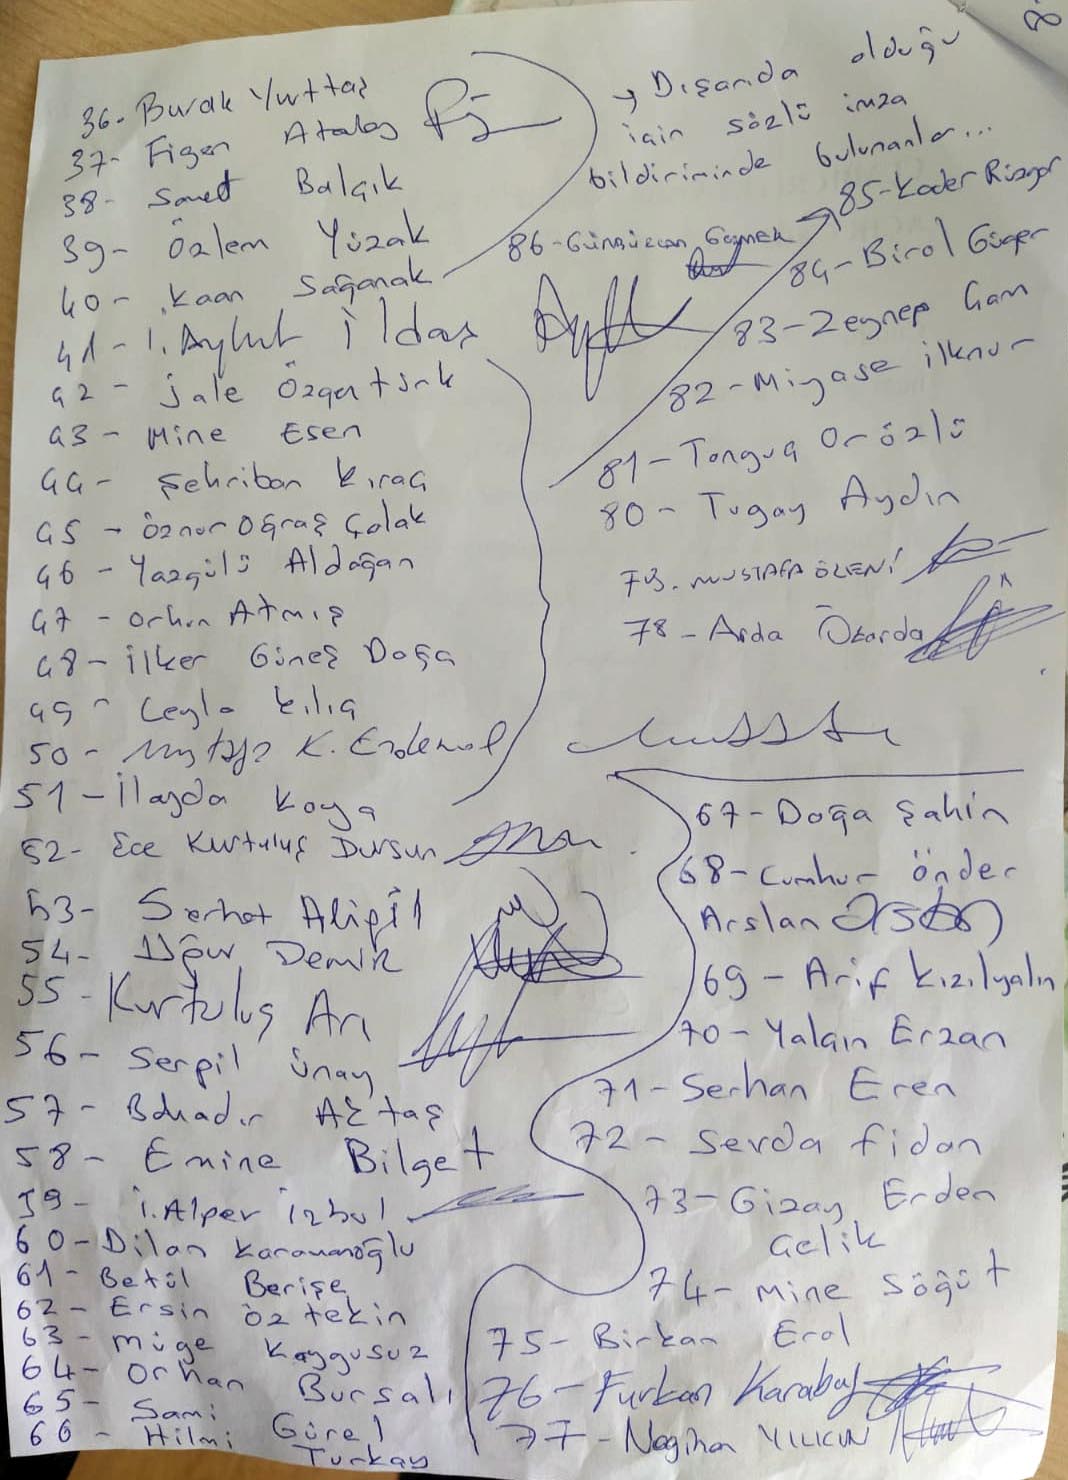 36- Burak Yurttaş
37- Figen Atalay
38- Samet Balçık
39- Özlem Yüzak
40- Kaan Sağanak
41- İ. Aykut İldaş
42- Jale Özgentürk
43- Mine Esen
44- Şehriban Kıraç
45- Öznur Oğraş Çolak
46- Yazgülü Aldoğan
47- Orhun Atmış
48- İlker Güneş Doğa
49- Ceyla Kılıç
50- Mustafa K. Erdemol
51- İlayda Kaya
52- Ece Kurtuluş Dursun
53- Serhat Aligil
54- Uğur Demir
55- Kurtuluş Arı
56- Serpil Ünay
57- Bahadır Aktaş
58- Emine Bilget
59- İ. Alper İzbul
60- Dilan Karamanoğlu
61- Betül Berişe
62- Ersin Öztekin
63- Müge Kaygusuz
64- Orhan Bursalı
65- Sami Gürel
66- Hilmi Turkay
→ Dışarıda olduğu
için sözlü imza
bildiriminde bulunanlar...
85- Kader Rüzgar
86- Geçmek
84- Birol Güger
83- Zeynep Cam
82- Miyase İlknur
81- Tonguç Orözlü
80- Tugay Aydın
79. MUSTAFA
78- Arda Özarda
67- Doğa Şahin
68- Cumhur Önder
Arslan
69- Arif Kızılyalın
70- Yalçın Erzan
71- Serhan Eren
72- Sevda Fidan
73- Gizay Erden
Çelik
74- Mine Söğüt
75- Birkan Erol
76- Furkan Karabay
77- Nagihan YILKIN